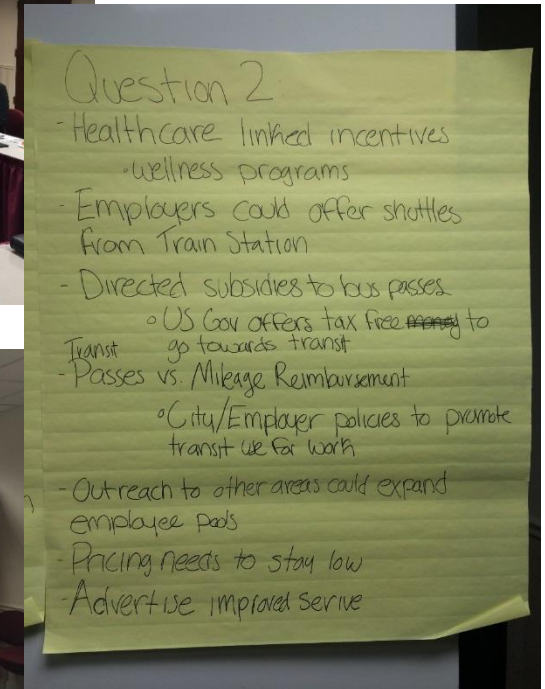 Question 2
- Healthcare linked incentives
◦ wellness programs
- Employers could offer shuttles
from Train Station
- Directed subsidies to bus passes
◦ US Gov offers tax free money to
go towards transit
Transit
- Passes vs. Mileage Reimbursement
◦ City/Employer policies to promote
transit use for work
- Outreach to other areas could expand
employee pools
- Pricing needs to stay low
- Advertise improved serive